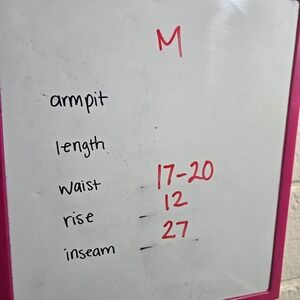 M
armpit
length
waist 17-20
rise 12
inseam 27